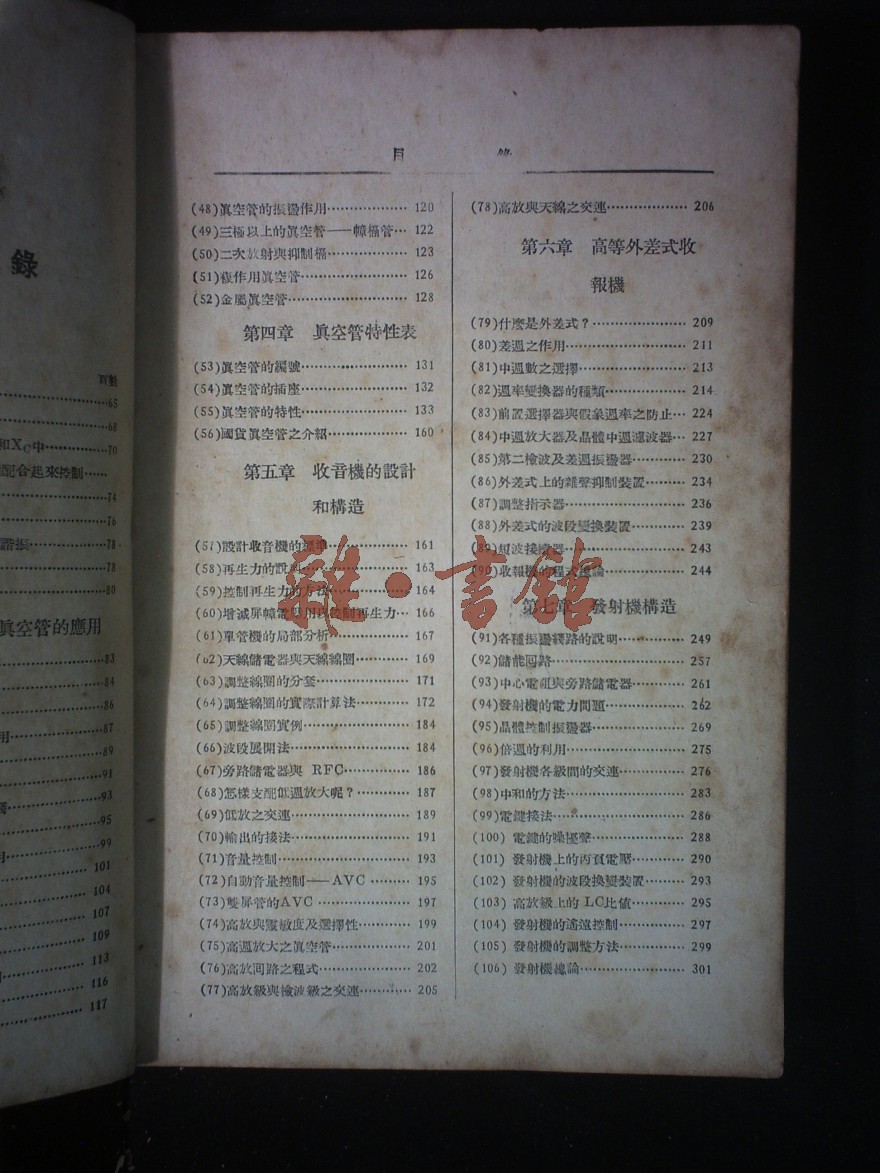 錄
頁數
65
68
和XC中 70
配合起來控制
74
76
諧振 78
78
80
眞空管的應用
83
84
86
用 87
89
91
93
95
99
101
104
107
109
113
116
117
目 錄
(48)眞空管的振盪作用 120
(49)三極以上的眞空管——幛檽管 122
(50)二次放射與抑制檽 123
(51)複作用眞空管 126
(52)金屬眞空管 128
第四章 眞空管特性表
(53)眞空管的編號 131
(54)眞空管的插座 132
(55)眞空管的特性 133
(56)國貨眞空管之介紹 160
第五章 收音機的設計
和構造
(57)設計收音機的標準 161
(58)再生力的說明 163
(59)控制再生力的方法 164
(60)增減屏幛電壓用以控制再生力 166
(61)單管機的局部分析 167
(62)天線儲電器與天線線圈 169
(63)調整線圈的分套 171
(64)調整線圈的實際計算法 172
(65)調整線圈實例 184
(66)波段展開法 184
(67)旁路儲電器與 RFC 186
(68)怎樣支配低週放大呢? 187
(69)低放之交連 189
(70)輸出的接法 191
(71)音量控制 193
(72)自動音量控制——AVC 195
(73)雙屏管的AVC 197
(74)高放與靈敏度及選擇性 199
(75)高週放大之眞空管 201
(76)高放回路之程式 202
(77)高放級與檢波級之交連 205
(78)高放與天線之交連 206
第六章 高等外差式收
報機
(79)什麼是外差式? 209
(80)差週之作用 211
(81)中週數之選擇 213
(82)週率變換器的種類 214
(83)前置選擇器與假象週率之防止 224
(84)中週放大器及晶體中週濾波器 227
(85)第二檢波及差週振盪器 230
(86)外差式上的雜聲抑制裝置 234
(87)調整指示器 236
(88)外差式的波段變換裝置 239
(89)短波接證器 243
(90)收報機的程式總論 244
第七章 發射機構造
(91)各種振盪綫路的說明 249
(92)儲能回路 257
(93)中心電阻與旁路儲電器 261
(94)發射機的電力問題 262
(95)晶體控制振盪器 269
(96)倍週的利用 275
(97)發射機各級間的交連 276
(98)中和的方法 283
(99)電鍵接法 286
(100) 電鍵的噪擾聲 288
(101) 發射機上的丙負電壓 290
(102) 發射機的波段換變裝置 293
(103) 高放級上的 LC比值 295
(104) 發射機的遙遠控制 297
(105) 發射機的調整方法 299
(106) 發射機總論 301
雜·書館